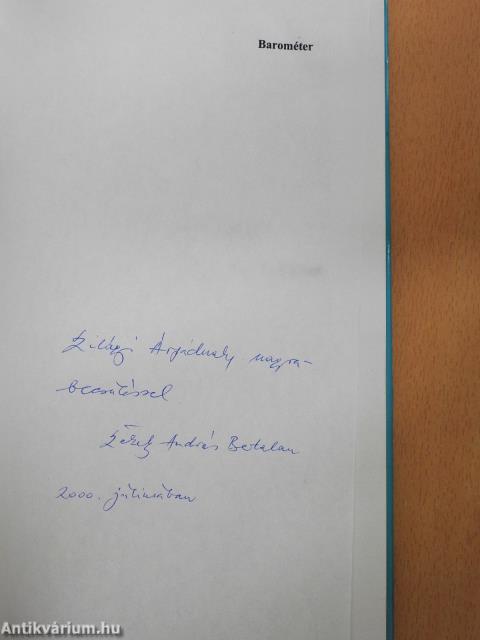 Barométer
Szilágyi Árpádnak nagyra-
becsüléssel
András Betalan
2000. júliusában
Antikvárium.hu